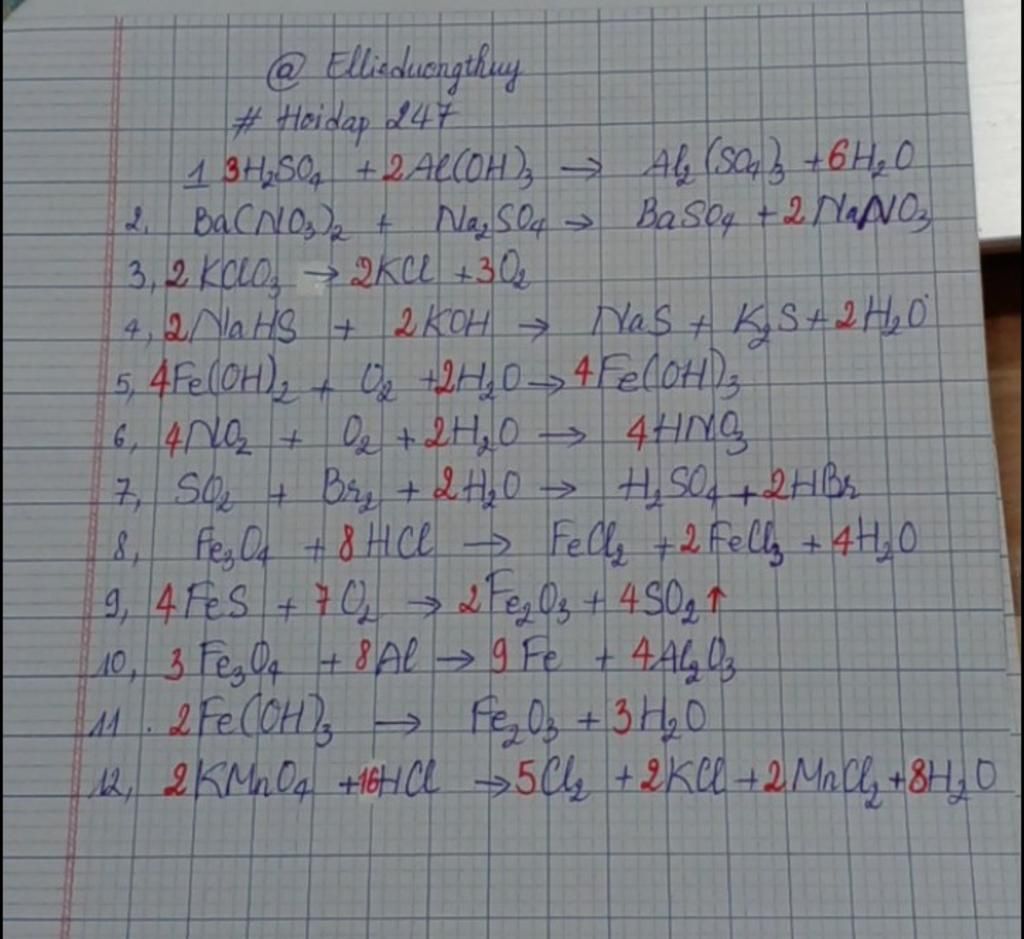 @ Ellieduongthuy
# Hoidap 247
1 3H₂SO₄ + 2Al(OH)₃ → Al₂(SO₄)₃ + 6H₂O
2, Ba(NO₃)₂ + Na₂SO₄ → BaSO₄ + 2NaNO₃
3, 2KClO₃ → 2KCl + 3O₂
4, 2NaHS + 2KOH → NaS + K₂S + 2H₂O
5, 4Fe(OH)₂ + O₂ + 2H₂O → 4Fe(OH)₃
6, 4NO₂ + O₂ + 2H₂O → 4HNO₃
7, SO₂ + Br₂ + 2H₂O → H₂SO₄ + 2HBr
8, Fe₃O₄ + 8HCl → FeCl₂ + 2FeCl₃ + 4H₂O
9, 4FeS + 7O₂ → 2Fe₂O₃ + 4SO₂↑
10, 3Fe₃O₄ + 8Al → 9Fe + 4Al₂O₃
11. 2Fe(OH)₃ → Fe₂O₃ + 3H₂O
12, 2KMnO₄ + 16HCl → 5Cl₂ + 2KCl + 2MnCl₂ + 8H₂O